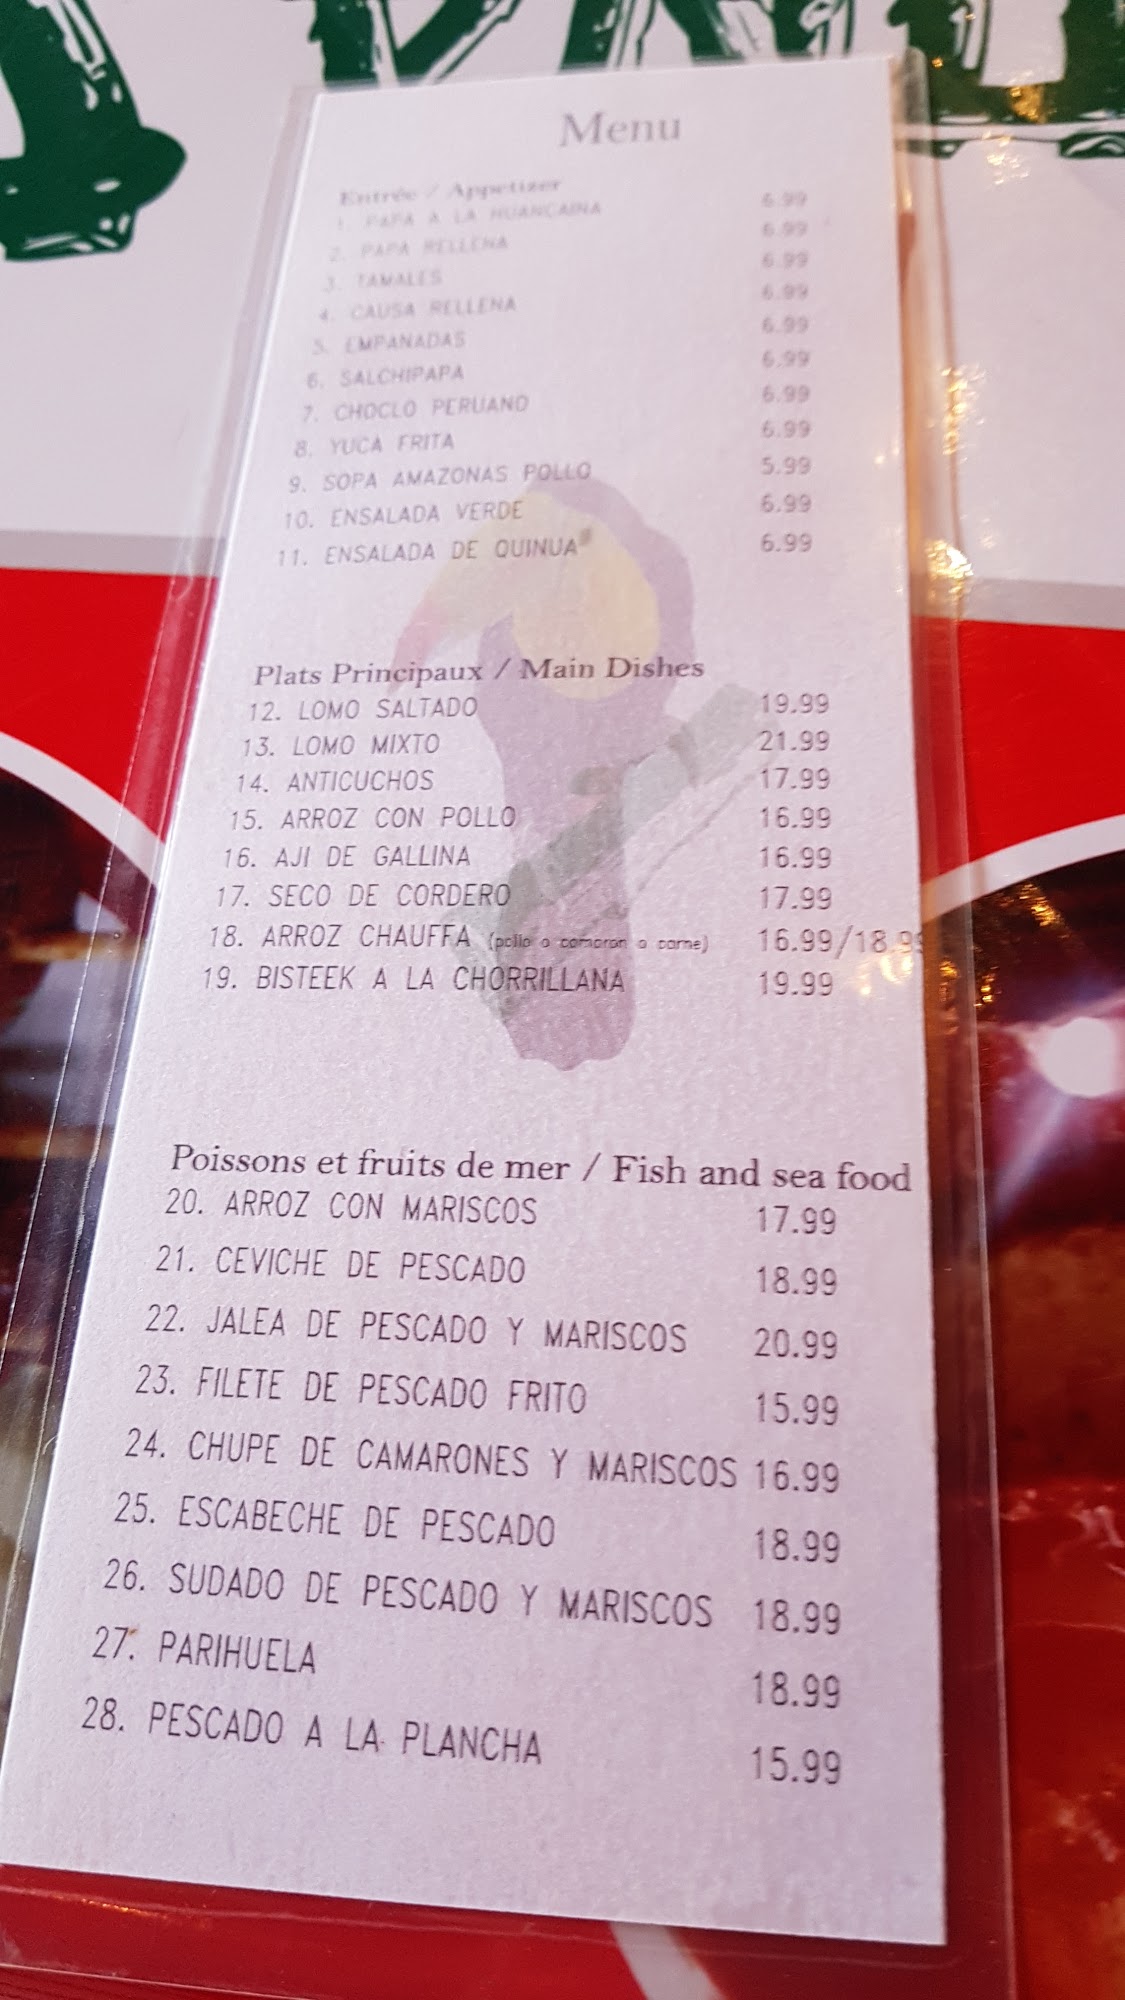 Menu
Entrée / Appetizer
1. PAPA A LA HUANCAINA 6.99
2. PAPA RELLENA 6.99
3. TAMALES 6.99
4. CAUSA RELLENA 6.99
5. EMPANADAS 6.99
6. SALCHIPAPA 6.99
7. CHOCLO PERUANO 6.99
8. YUCA FRITA 6.99
9. SOPA AMAZONAS POLLO 5.99
10. ENSALADA VERDE 6.99
11. ENSALADA DE QUINUA 6.99
Plats Principaux / Main Dishes
12. LOMO SALTADO 19.99
13. LOMO MIXTO 21.99
14. ANTICUCHOS 17.99
15. ARROZ CON POLLO 16.99
16. AJI DE GALLINA 16.99
17. SECO DE CORDERO 17.99
18. ARROZ CHAUFFA (pollo o camaron o carne) 16.99/18.99
19. BISTEEK A LA CHORRILLANA 19.99
Poissons et fruits de mer / Fish and sea food
20. ARROZ CON MARISCOS 17.99
21. CEVICHE DE PESCADO 18.99
22. JALEA DE PESCADO Y MARISCOS 20.99
23. FILETE DE PESCADO FRITO 15.99
24. CHUPE DE CAMARONES Y MARISCOS 16.99
25. ESCABECHE DE PESCADO 18.99
26. SUDADO DE PESCADO Y MARISCOS 18.99
27. PARIHUELA 18.99
28. PESCADO A LA PLANCHA 15.99